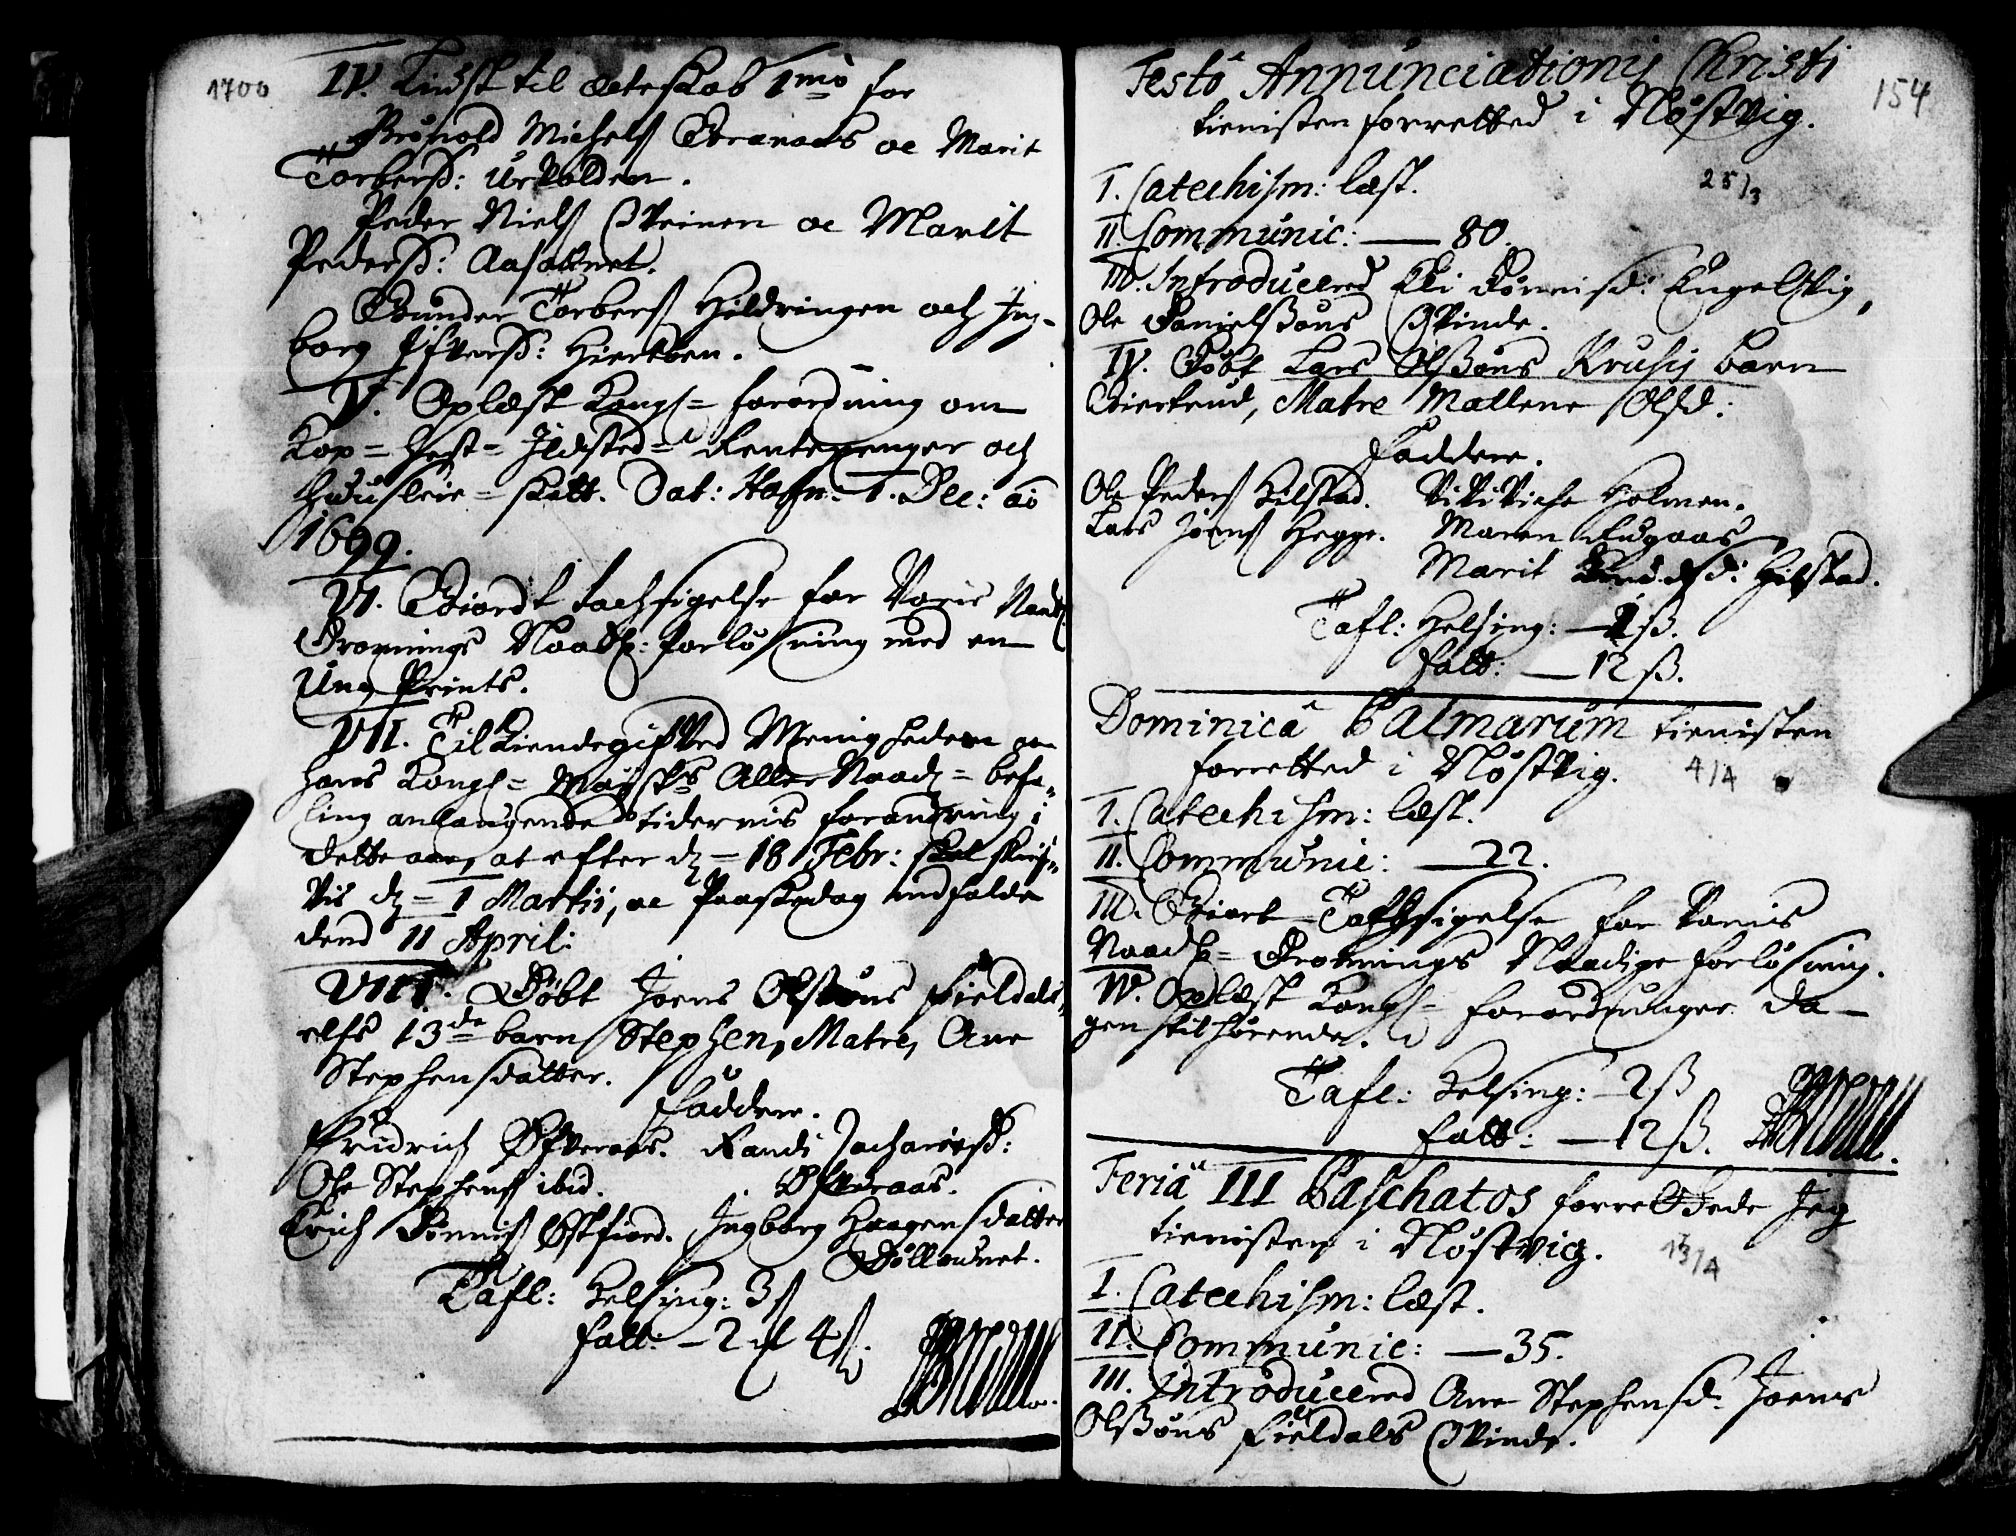 1700
IV. Liust til ecteskab 1mo for
Brønold Michels Granaas oc Marit
Torbersd: Urvolden.
Peder Niels Sveinen oc Marit
Pedersd: Aasatnet.
Gunder Torbers Hildringen och Ing-
borg Ifversd: Hiertøen.
V. Oplæst Kongl= forordning om
Kop= Hest= Ildsted= Rentepenger och
Huusleie= skatt. Dat: Hafn. 1. Dec: ao
1699.
VI. Giordt tachsigelse for Voris Naad:
Dronnings Naadh: forløsning med en
Ung Prints.
VII. Tilkiendegifved Menigheden om
hans Kongl= Mayts Aller Naad= befa-
ling anlangende tidernis forandring i
dette aar, at efter dn= 18 Febr: skal skrif-
vis dn= 1 Martii, oc Paaskedag indfalde
dend 11 April:
VIII. Døbt Joens Olssøns Fieldals
elfs 13de barn Stephen, Matre, Ane
Stephensdatter.
Faddere.
Fridrich Øfveraas. Randi Zachariæsd:
Ole Stephens ibid. Øfveraas.
Erich Tønnis Østfiord. Ingborg Haagensdatter
Døllavnet.
Tafl: Helsing: 3 s
Fatt: — 2 ort 4 s.
154
Festo Annunciationis Christi
tienisten forretted i Nøstvig.
25/3
I. Catechism: læst.
II. Communic: — 80.
III. Introducered Eli Tønnisd: Engelsvig,
Ole Danielssøns Qvinde.
IV. Døbt Lars Olssøns Krusis barn
Giertrud, Matre Mallene Olsd:
Faddere.
Ole Peders Hilstad. Vivikche Holmen.
Lars Joens Hegge. Maren Fugaas
Marit Hilstad.
Tafl: Helsing: — ß.
Fatt: — 12 ß.
Dominica Palmarum tienisten
forretted i Nøstvig. 4/4
I. Catechism: læst.
II. Communic: — 22.
III. Giort Tachsigelse for Voris
Naadh= Dronnings Naadige forløsning.
IV. Oplæst Kongl= forordninger da-
gen tilhørende.
Tafl: Helsing: — 2 ß
Fatt: — 12 ß.
Feria III Paschatos forrettede Jeg
tienisten i Nøstvig. 13/4
I. Catechism: læst.
II. Communic: — 35.
III. Introducered Ane Stephensd: Joens
Olssøns Fieldals Qvinde.